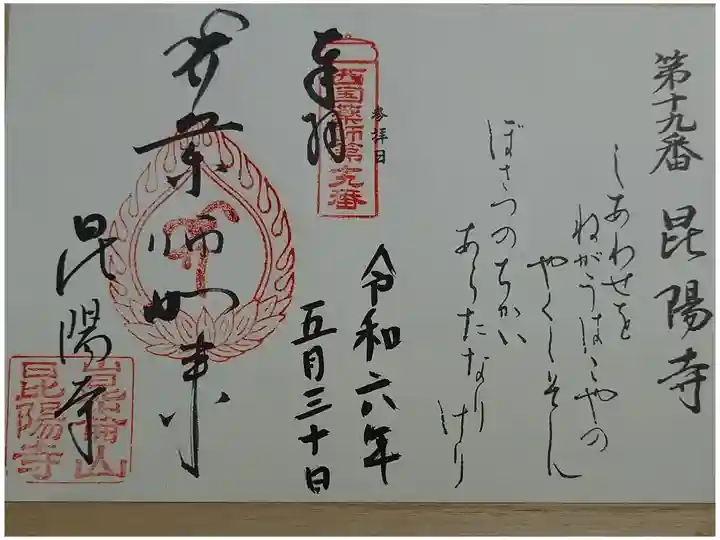 第十九番 昆陽寺
しあわせを
ねがうはこやの
やくしそん
ぼさつのちかい
あらたなり
けり
参拝日
令和六年
五月三十日
奉拝
西国薬師第十九番
薬師如来
昆陽寺
山
昆陽寺